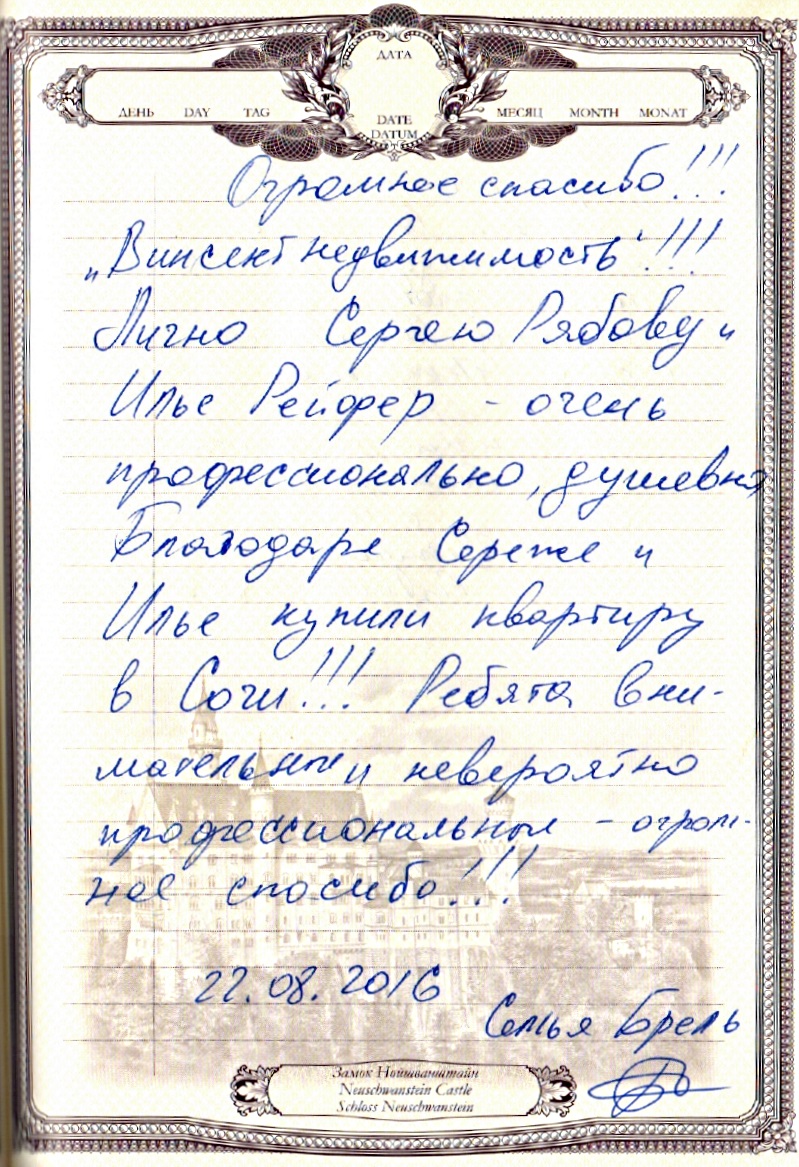 ДАТА
ДЕНЬ DAY TAG
DATE
DATUM
МЕСЯЦ MONTH MONAT
Огромное спасибо!!!
„Винсент недвижимость"!!!
Лично Сергею Рябову и
Илье Рейфер - очень
профессионально, душевно
Благодаря Сереже и
Илье купили квартиру
в Сочи!!! Ребята вни-
мательные и невероятно
профессиональные - огром-
ное спасибо!!!
22.08.2016
Семья Брель
Замок Нойшванштайн
Neuschwanstein Castle
Schloss Neuschwanstein